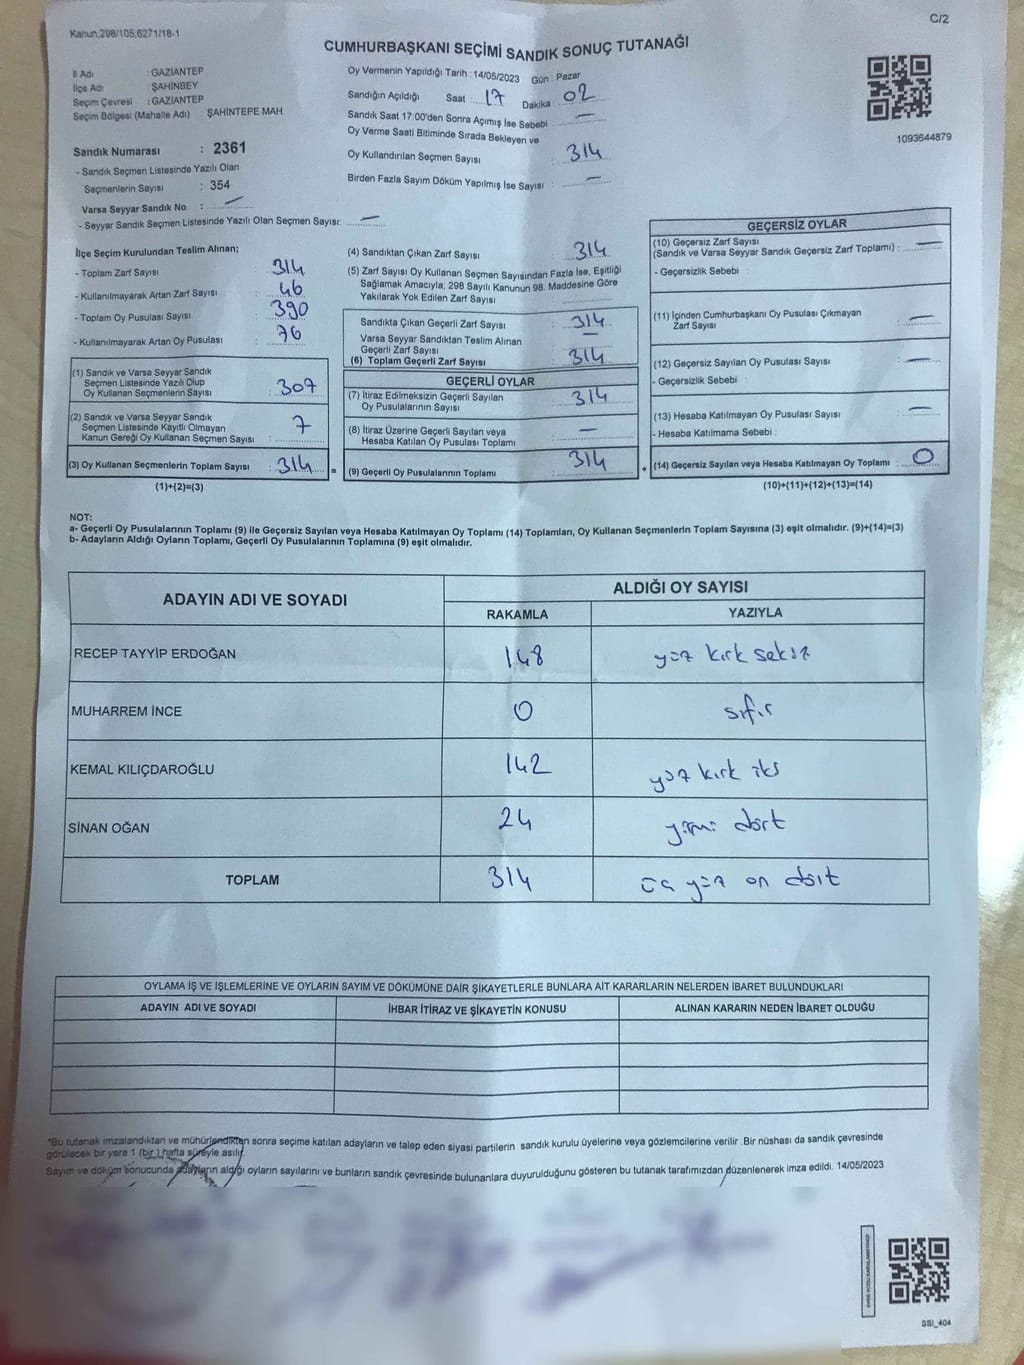 Kanun;298/105;6271/18-1
C/2
CUMHURBAŞKANI SEÇİMİ SANDIK SONUÇ TUTANAĞI
İl Adı : GAZİANTEP
İlçe Adı : ŞAHİNBEY
Seçim Çevresi : GAZİANTEP
Seçim Bölgesi (Mahalle Adı) : ŞAHİNTEPE MAH.
Sandık Numarası : 2361
- Sandık Seçmen Listesinde Yazılı Olan
Seçmenlerin Sayısı : 354
Varsa Seyyar Sandık No : —
- Seyyar Sandık Seçmen Listesinde Yazılı Olan Seçmen Sayısı: —
Oy Vermenin Yapıldığı Tarih : 14/05/2023 Gün : Pazar
Sandığın Açıldığı Saat : 17 Dakika : 02
Sandık Saat 17:00'den Sonra Açımış İse Sebebi : —
Oy Verme Saati Bitiminde Sırada Bekleyen ve
Oy Kullandırılan Seçmen Sayısı : 314
Birden Fazla Sayım Döküm Yapılmış İse Sayısı : —
1093644879
İlçe Seçim Kurulundan Teslim Alınan;
- Toplam Zarf Sayısı : 314
- Kullanılmayarak Artan Zarf Sayısı : 46
- Toplam Oy Pusulası Sayısı : 390
- Kullanılmayarak Artan Oy Pusulası : 76
(1) Sandık ve Varsa Seyyar Sandık
Seçmen Listesinde Yazılı Olup
Oy Kullanan Seçmenlerin Sayısı : 307
(2) Sandık ve Varsa Seyyar Sandık
Seçmen Listesinde Kayıtlı Olmayan
Kanun Gereği Oy Kullanan Seçmen Sayısı : 7
(3) Oy Kullanan Seçmenlerin Toplam Sayısı : 314 =
(1)+(2)=(3)
(4) Sandıktan Çıkan Zarf Sayısı : 314
(5) Zarf Sayısı Oy Kullanan Seçmen Sayısından Fazla İse, Eşitliği
Sağlamak Amacıyla; 298 Sayılı Kanunun 98. Maddesine Göre
Yakılarak Yok Edilen Zarf Sayısı :
Sandıkta Çıkan Geçerli Zarf Sayısı : 314
Varsa Seyyar Sandıktan Teslim Alınan
Geçerli Zarf Sayısı : —
(6) Toplam Geçerli Zarf Sayısı : 314
GEÇERLİ OYLAR
(7) İtiraz Edilmeksizin Geçerli Sayılan
Oy Pusulalarının Sayısı : 314
(8) İtiraz Üzerine Geçerli Sayılan veya
Hesaba Katılan Oy Pusulası Toplamı : —
(9) Geçerli Oy Pusulalarının Toplamı : 314 +
GEÇERSİZ OYLAR
(10) Geçersiz Zarf Sayısı
(Sandık ve Varsa Seyyar Sandık Geçersiz Zarf Toplamı) : —
- Geçersizlik Sebebi :
(11) İçinden Cumhurbaşkanı Oy Pusulası Çıkmayan
Zarf Sayısı : —
(12) Geçersiz Sayılan Oy Pusulası Sayısı : —
- Geçersizlik Sebebi :
(13) Hesaba Katılmayan Oy Pusulası Sayısı : —
- Hesaba Katılmama Sebebi :
(14) Geçersiz Sayılan veya Hesaba Katılmayan Oy Toplamı : 0
(10)+(11)+(12)+(13)=(14)
NOT:
a- Geçerli Oy Pusulalarının Toplamı (9) ile Geçersiz Sayılan veya Hesaba Katılmayan Oy Toplamı (14) Toplamları, Oy Kullanan Seçmenlerin Toplam Sayısına (3) eşit olmalıdır. (9)+(14)=(3)
b- Adayların Aldığı Oyların Toplamı, Geçerli Oy Pusulalarının Toplamına (9) eşit olmalıdır.
ADAYIN ADI VE SOYADI
ALDIĞI OY SAYISI
RAKAMLA YAZIYLA
RECEP TAYYİP ERDOĞAN 148 yüz kırk sekiz
MUHARREM İNCE 0 sıfır
KEMAL KILIÇDAROĞLU 142 yüz kırk iki
SİNAN OĞAN 24 yirmi dört
TOPLAM 314 üç yüz on dört
OYLAMA İŞ VE İŞLEMLERİNE VE OYLARIN SAYIM VE DÖKÜMÜNE DAİR ŞİKAYETLERLE BUNLARA AİT KARARLARIN NELERDEN İBARET BULUNDUKLARI
ADAYIN ADI VE SOYADI İHBAR İTİRAZ VE ŞİKAYETİN KONUSU ALINAN KARARIN NEDEN İBARET OLDUĞU
*Bu tutanak imzalandıktan ve mühürlendikten sonra seçime katılan adayların ve talep eden siyasi partilerin sandık kurulu üyelerine veya gözlemcilerine verilir .Bir nüshası da sandık çevresinde
görülecek bir yere 1 (bir ) hafta süreyle asılır.
Sayım ve döküm sonucunda adayların aldığı oyların sayılarını ve bunların sandık çevresinde bulunanlara duyurulduğunu gösteren bu tutanak tarafımızdan düzenlenerek imza edildi. 14/05/2023
SSI_404